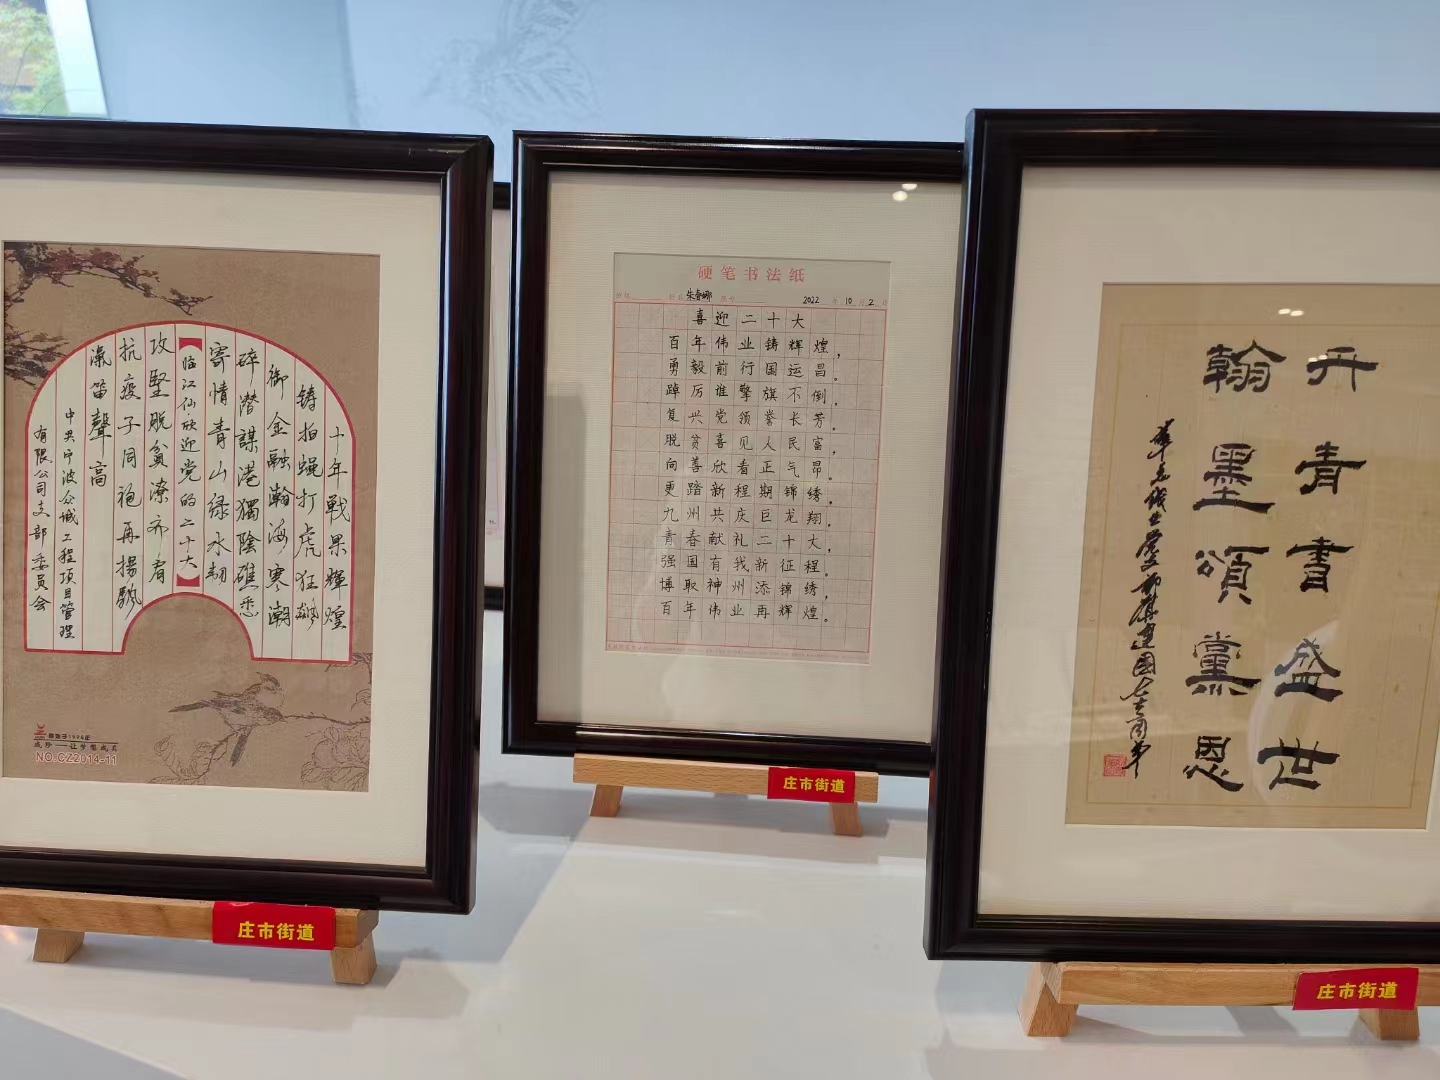 十年戰果輝煌
铸拍蝇打虎狂飙
御金融瀚海寒潮
碎潜謀港獨陰礁悉
寄情青山绿水韧
【临江仙·欣迎党的二十大】
攻堅脱貧潦夯看
抗疫子同袍再揚飘
瀛笛聲高
中共宁波众诚工程项目管理
有限公司支部委员会
成珍——让梦想成真
NO:CZ2014-11
庄市街道
硬笔书法纸
2022年10月2日
喜迎二十大
百年伟业铸辉煌，
勇毅前行国运昌。
踔厉谁擎旗不倒，
复兴党领誉长芳。
脱贫喜见人民富，
向善欣看正气昂。
更踏新程期锦绣，
九州共庆巨龙翔。
青春献礼二十大，
强国有我新征程。
博取神州添锦绣，
百年伟业再辉煌。
庄市街道
丹青書盛世
翰墨頌黨恩
庄市街道